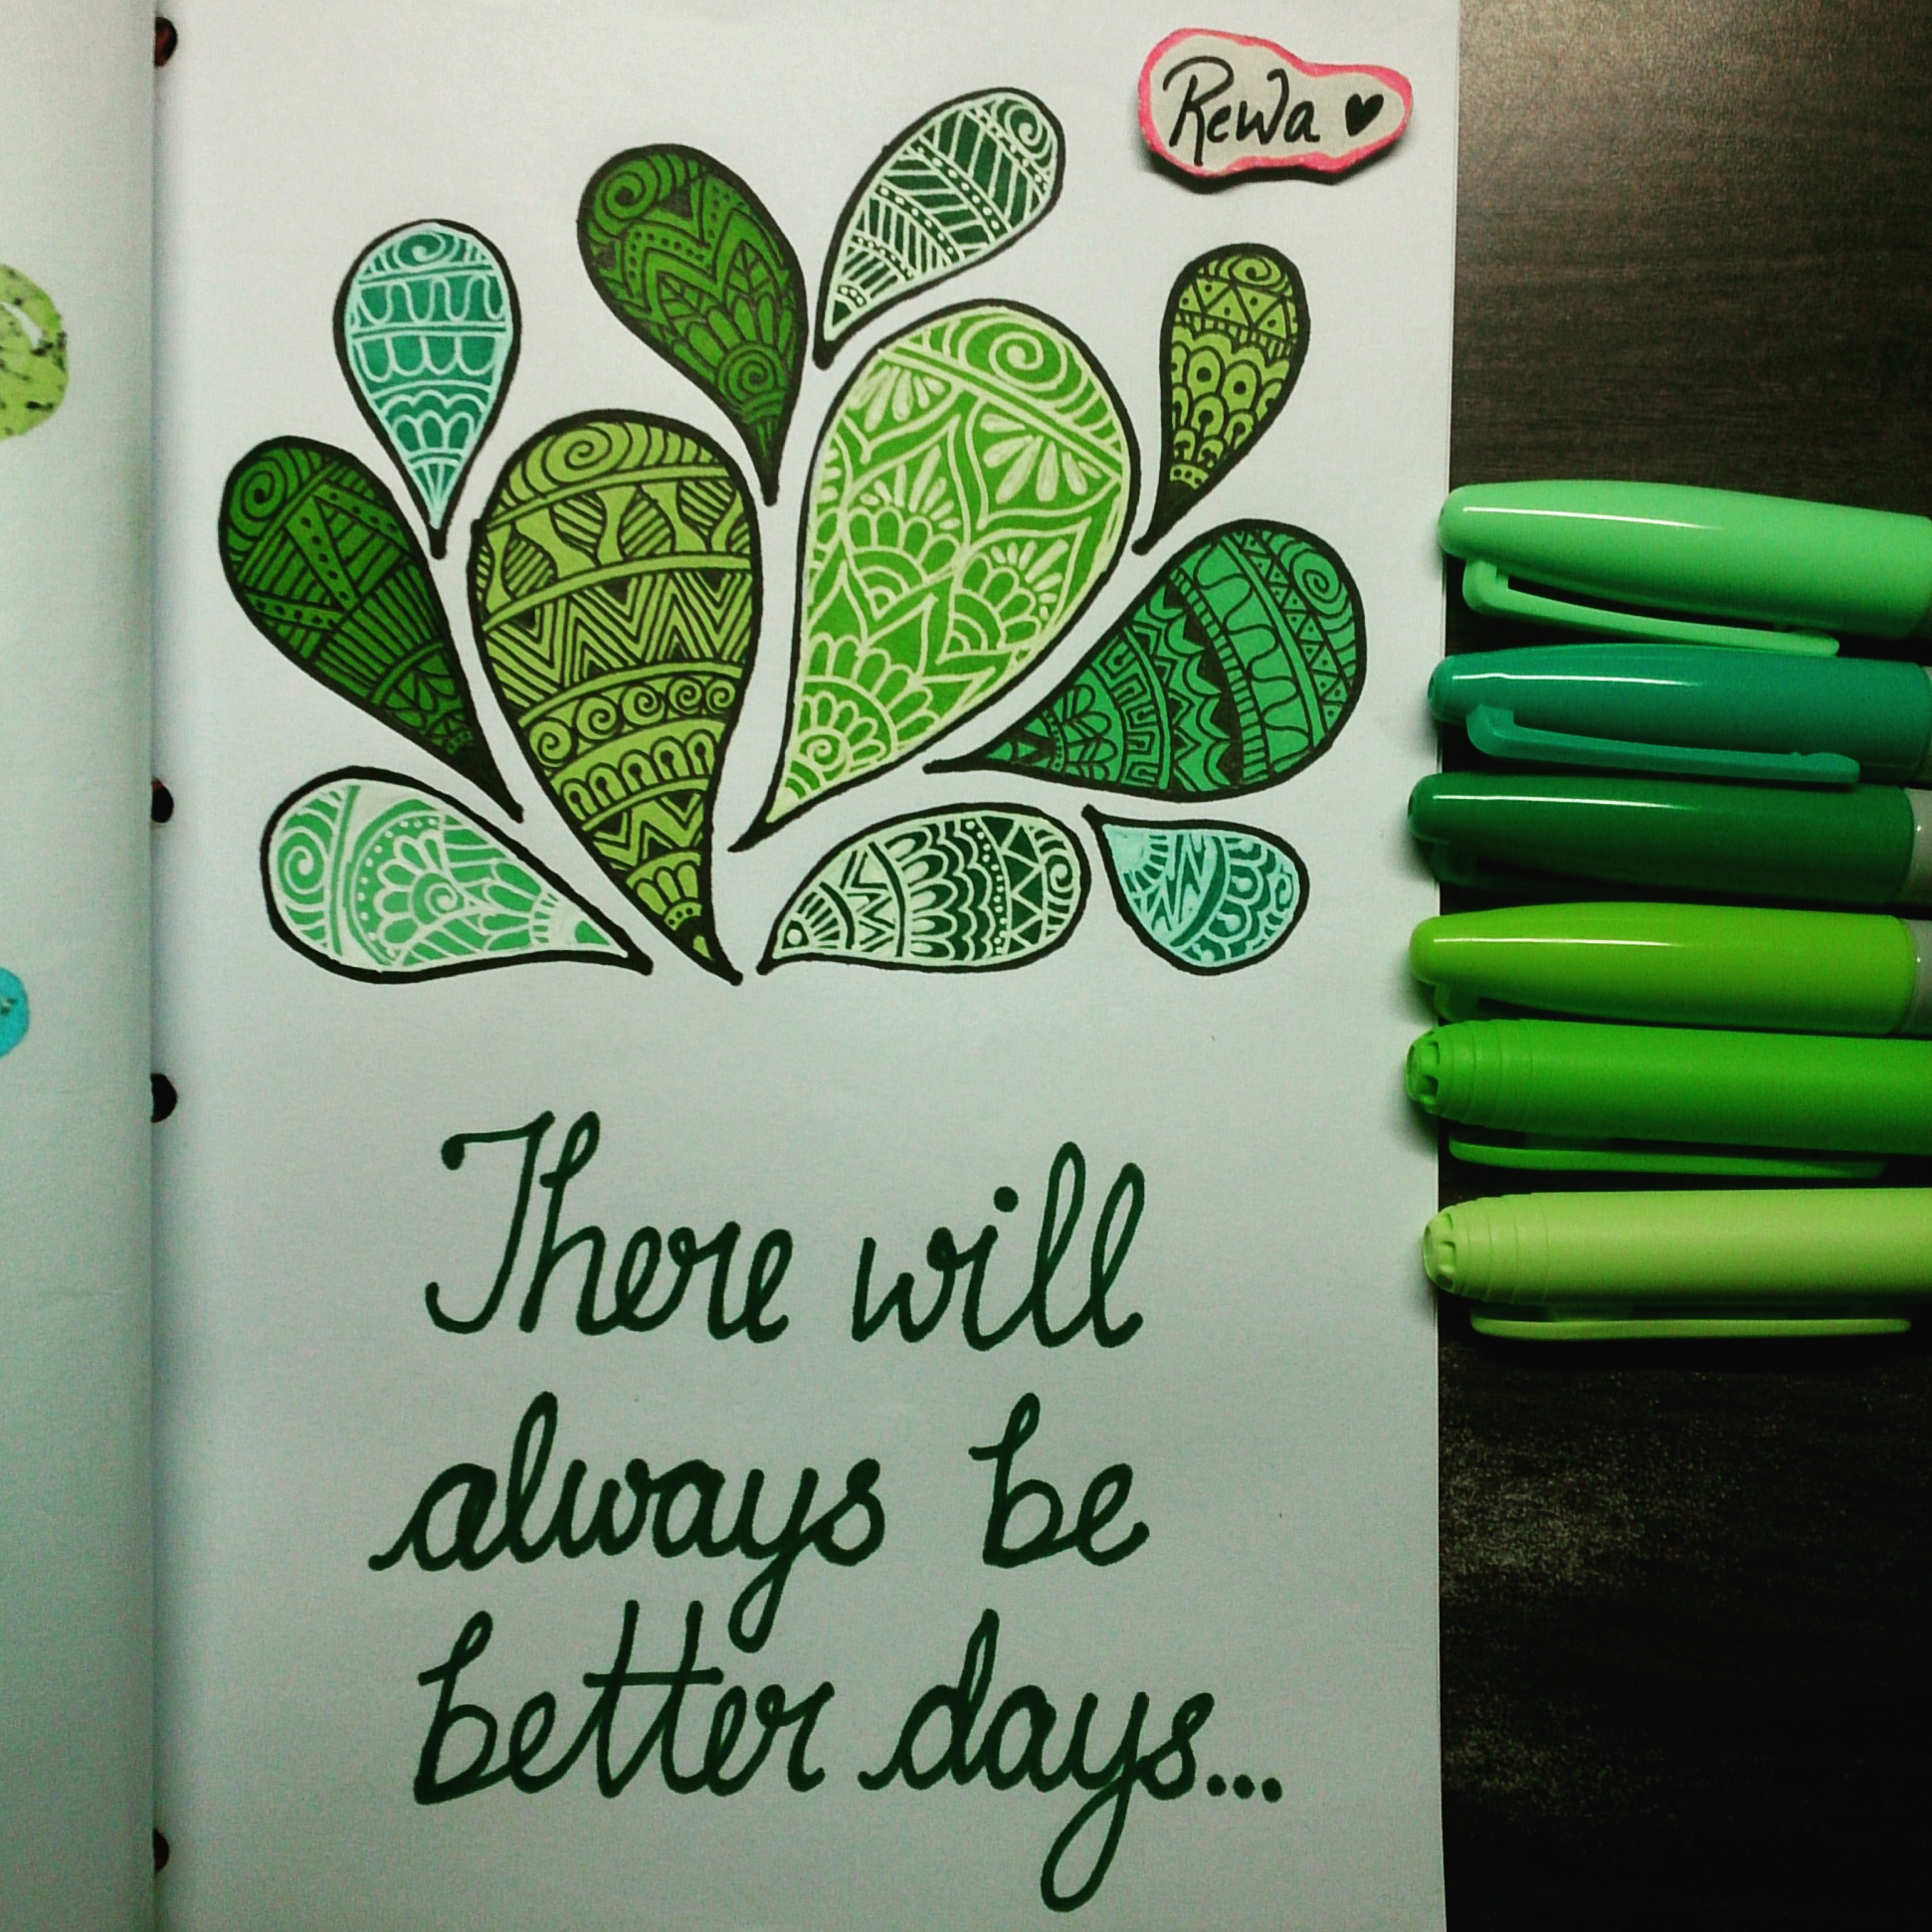 Rewa ♥
There will
always be
better days...